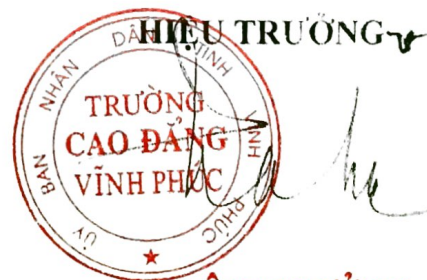 HIỆU TRƯỞNG
ỦY BAN NHÂN DÂN TỈNH VĨNH PHÚC
TRƯỜNG
CAO ĐẲNG
VĨNH PHÚC